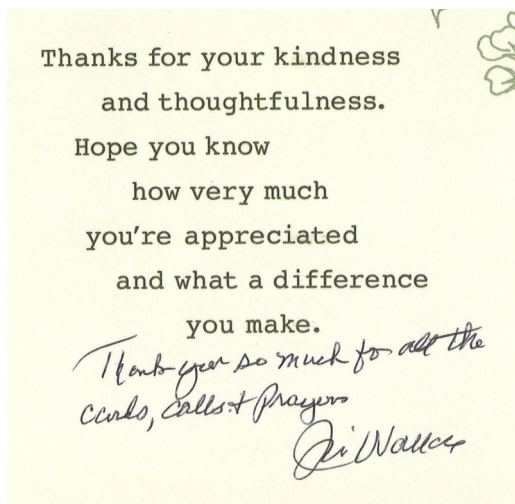 Thanks for your kindness
and thoughtfulness.
Hope you know
how very much
you're appreciated
and what a difference
you make.
Thank you so much for all the
cards, calls & Prayers
Wallace